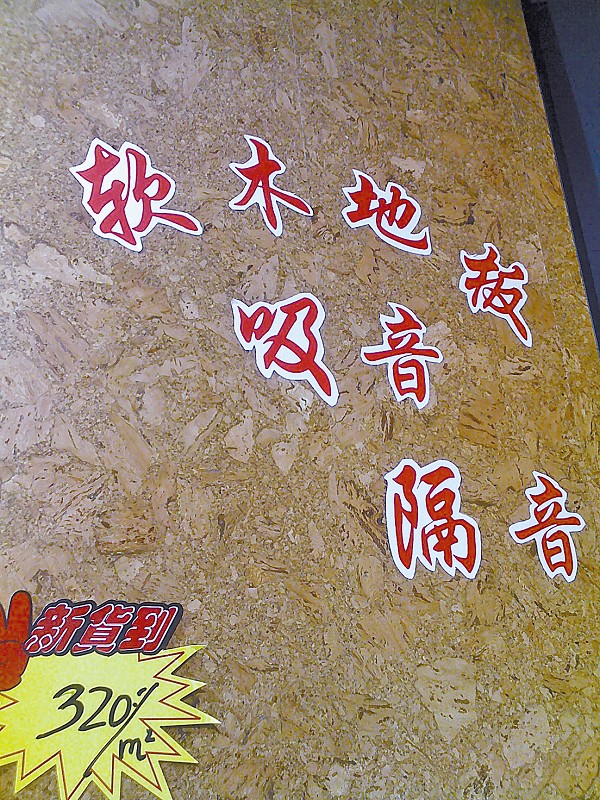 软木地板
吸音
隔音
新貨到
320元/m²